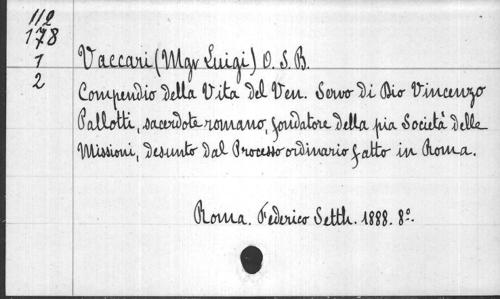 112
178
1
2
Vaccari (Mgr Luigi) O. S. B.
Compendio della Vita del Ven. Servo di Dio Vincenzo
Pallotti, sacerdote romano, fondatore della pia Società delle
Missioni, desunto dal Processo ordinario fatto in Roma.
Roma. Federico Setth. 1888. 8º.